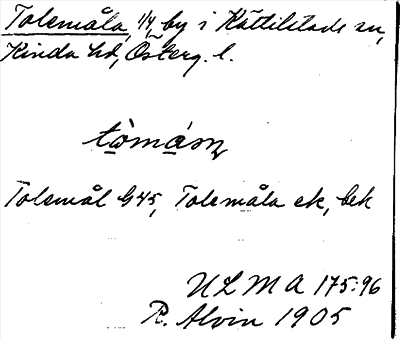 Tolemåla, 1/4, by i Kättilstads sn,
Kinda hd, Österg. l.
tòmásn
Tolemål G45, Tolemåla ek, bek
ULMA 175:96
R. Alvin 1905